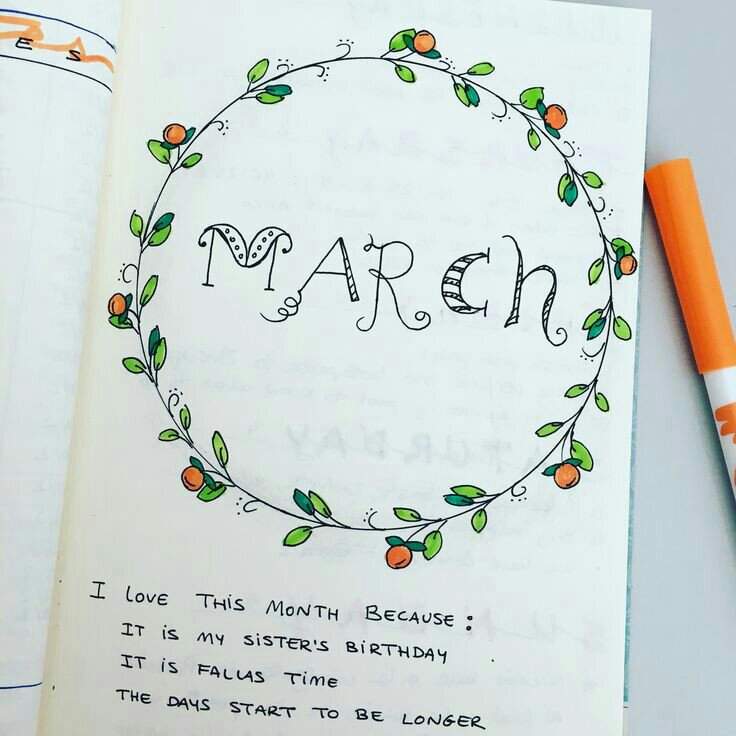 ES
MARCh
I LOVE THIS MONTH BECAUSE:
IT IS MY SISTER'S BIRTHDAY
IT IS FALLAS TIME
THE DAYS START TO BE LONGER